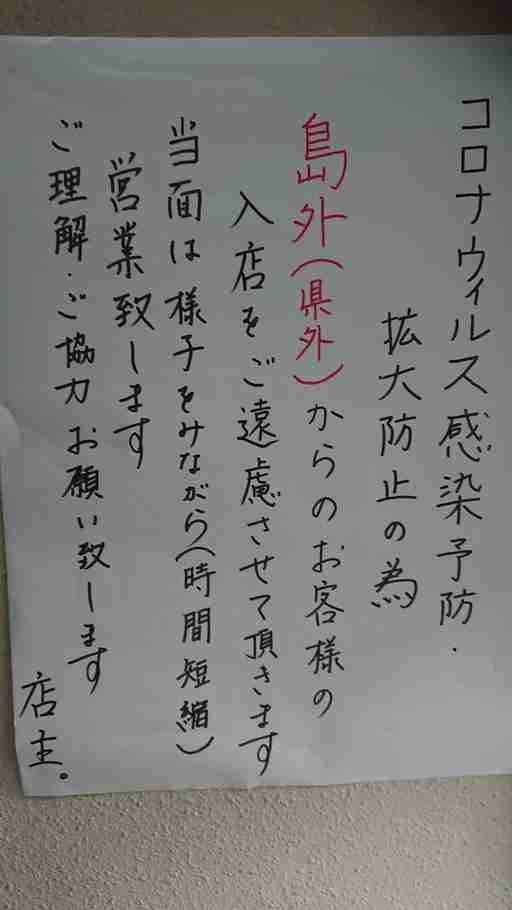 コロナウィルス感染予防・
拡大防止の為
島外(県外)からのお客様の
入店をご遠慮させて頂きます
当面は様子をみながら(時間短縮)
営業致します
ご理解・ご協力お願い致します
店主。